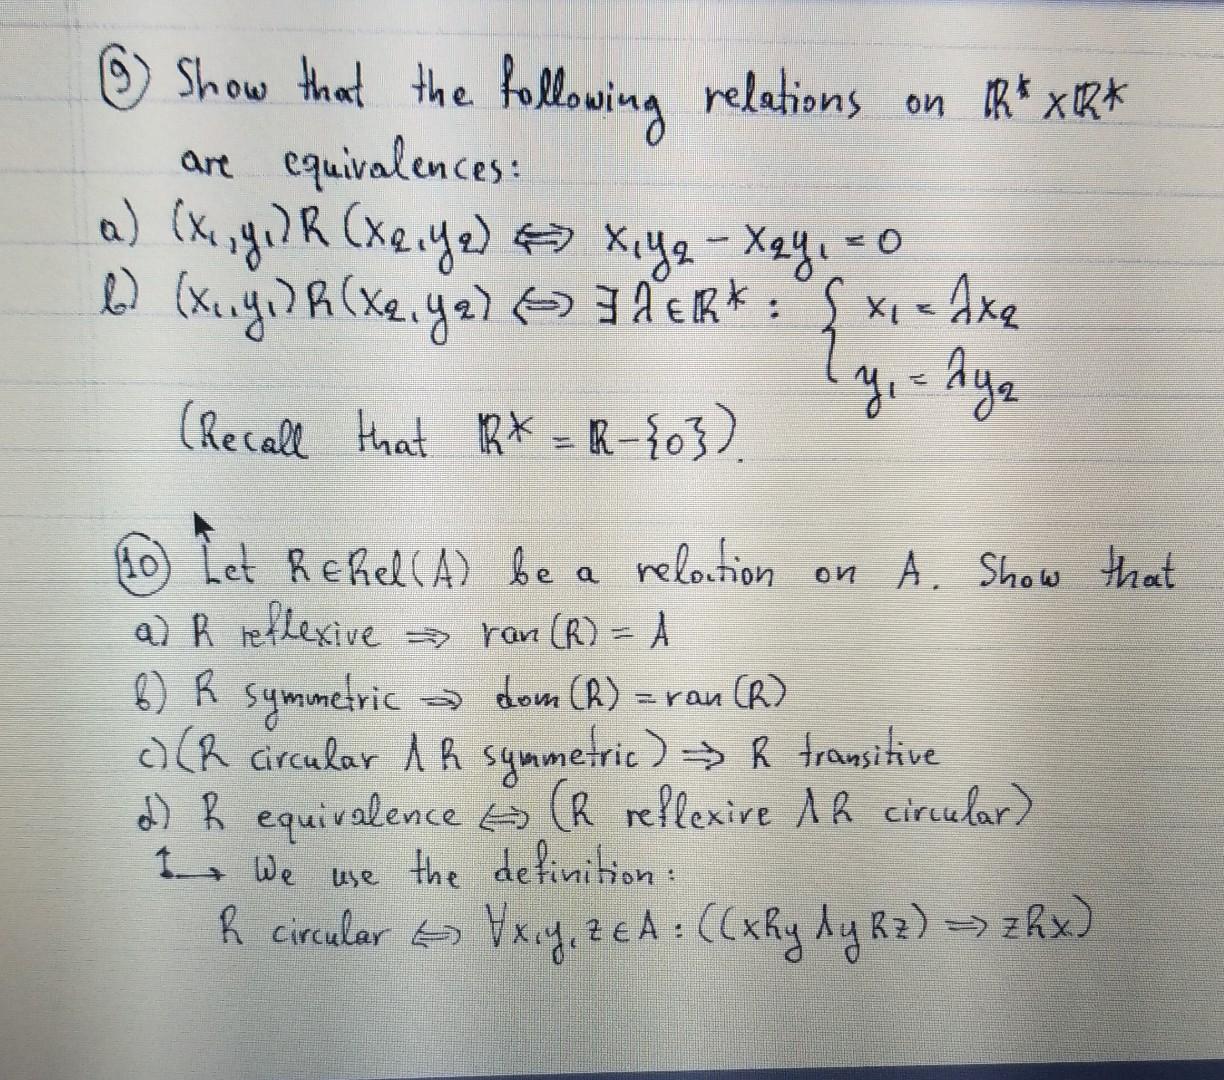 ⑨ Show that the following relations on ℝ* × ℝ*
are equivalences:
a) (x₁,y₁)R(x₂,y₂) ⇔ x₁y₂ - x₂y₁ = 0
b) (x₁,y₁)R(x₂,y₂) ⇔ ∃λ∈ℝ* : { x₁ = λx₂
y₁ = λy₂
(Recall that ℝ* = ℝ-{0}).
⑩ Let R∈Rel(A) be a relation on A. Show that
a) R reflexive ⇒ ran(R) = A
b) R symmetric ⇒ dom(R) = ran(R)
c) (R circular ∧ R symmetric) ⇒ R transitive
d) R equivalence ⇔ (R reflexive ∧ R circular)
↥→ We use the definition:
R circular ⇔ ∀x,y,z∈A : ((xRy ∧ yRz) ⇒ zRx)